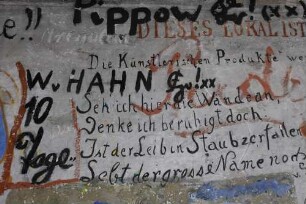 e!! Pippow G!(xx)
DIESES LOKAL IST
Die Künstlerischen Produkte we
W. v HAHN G.v!.xx
10 Tage..
Seh ich hier die Wände an,
Denke ich beruhigt doch.
Ist der Leib in Staub zerfallen
Lebt der grosse Name noch